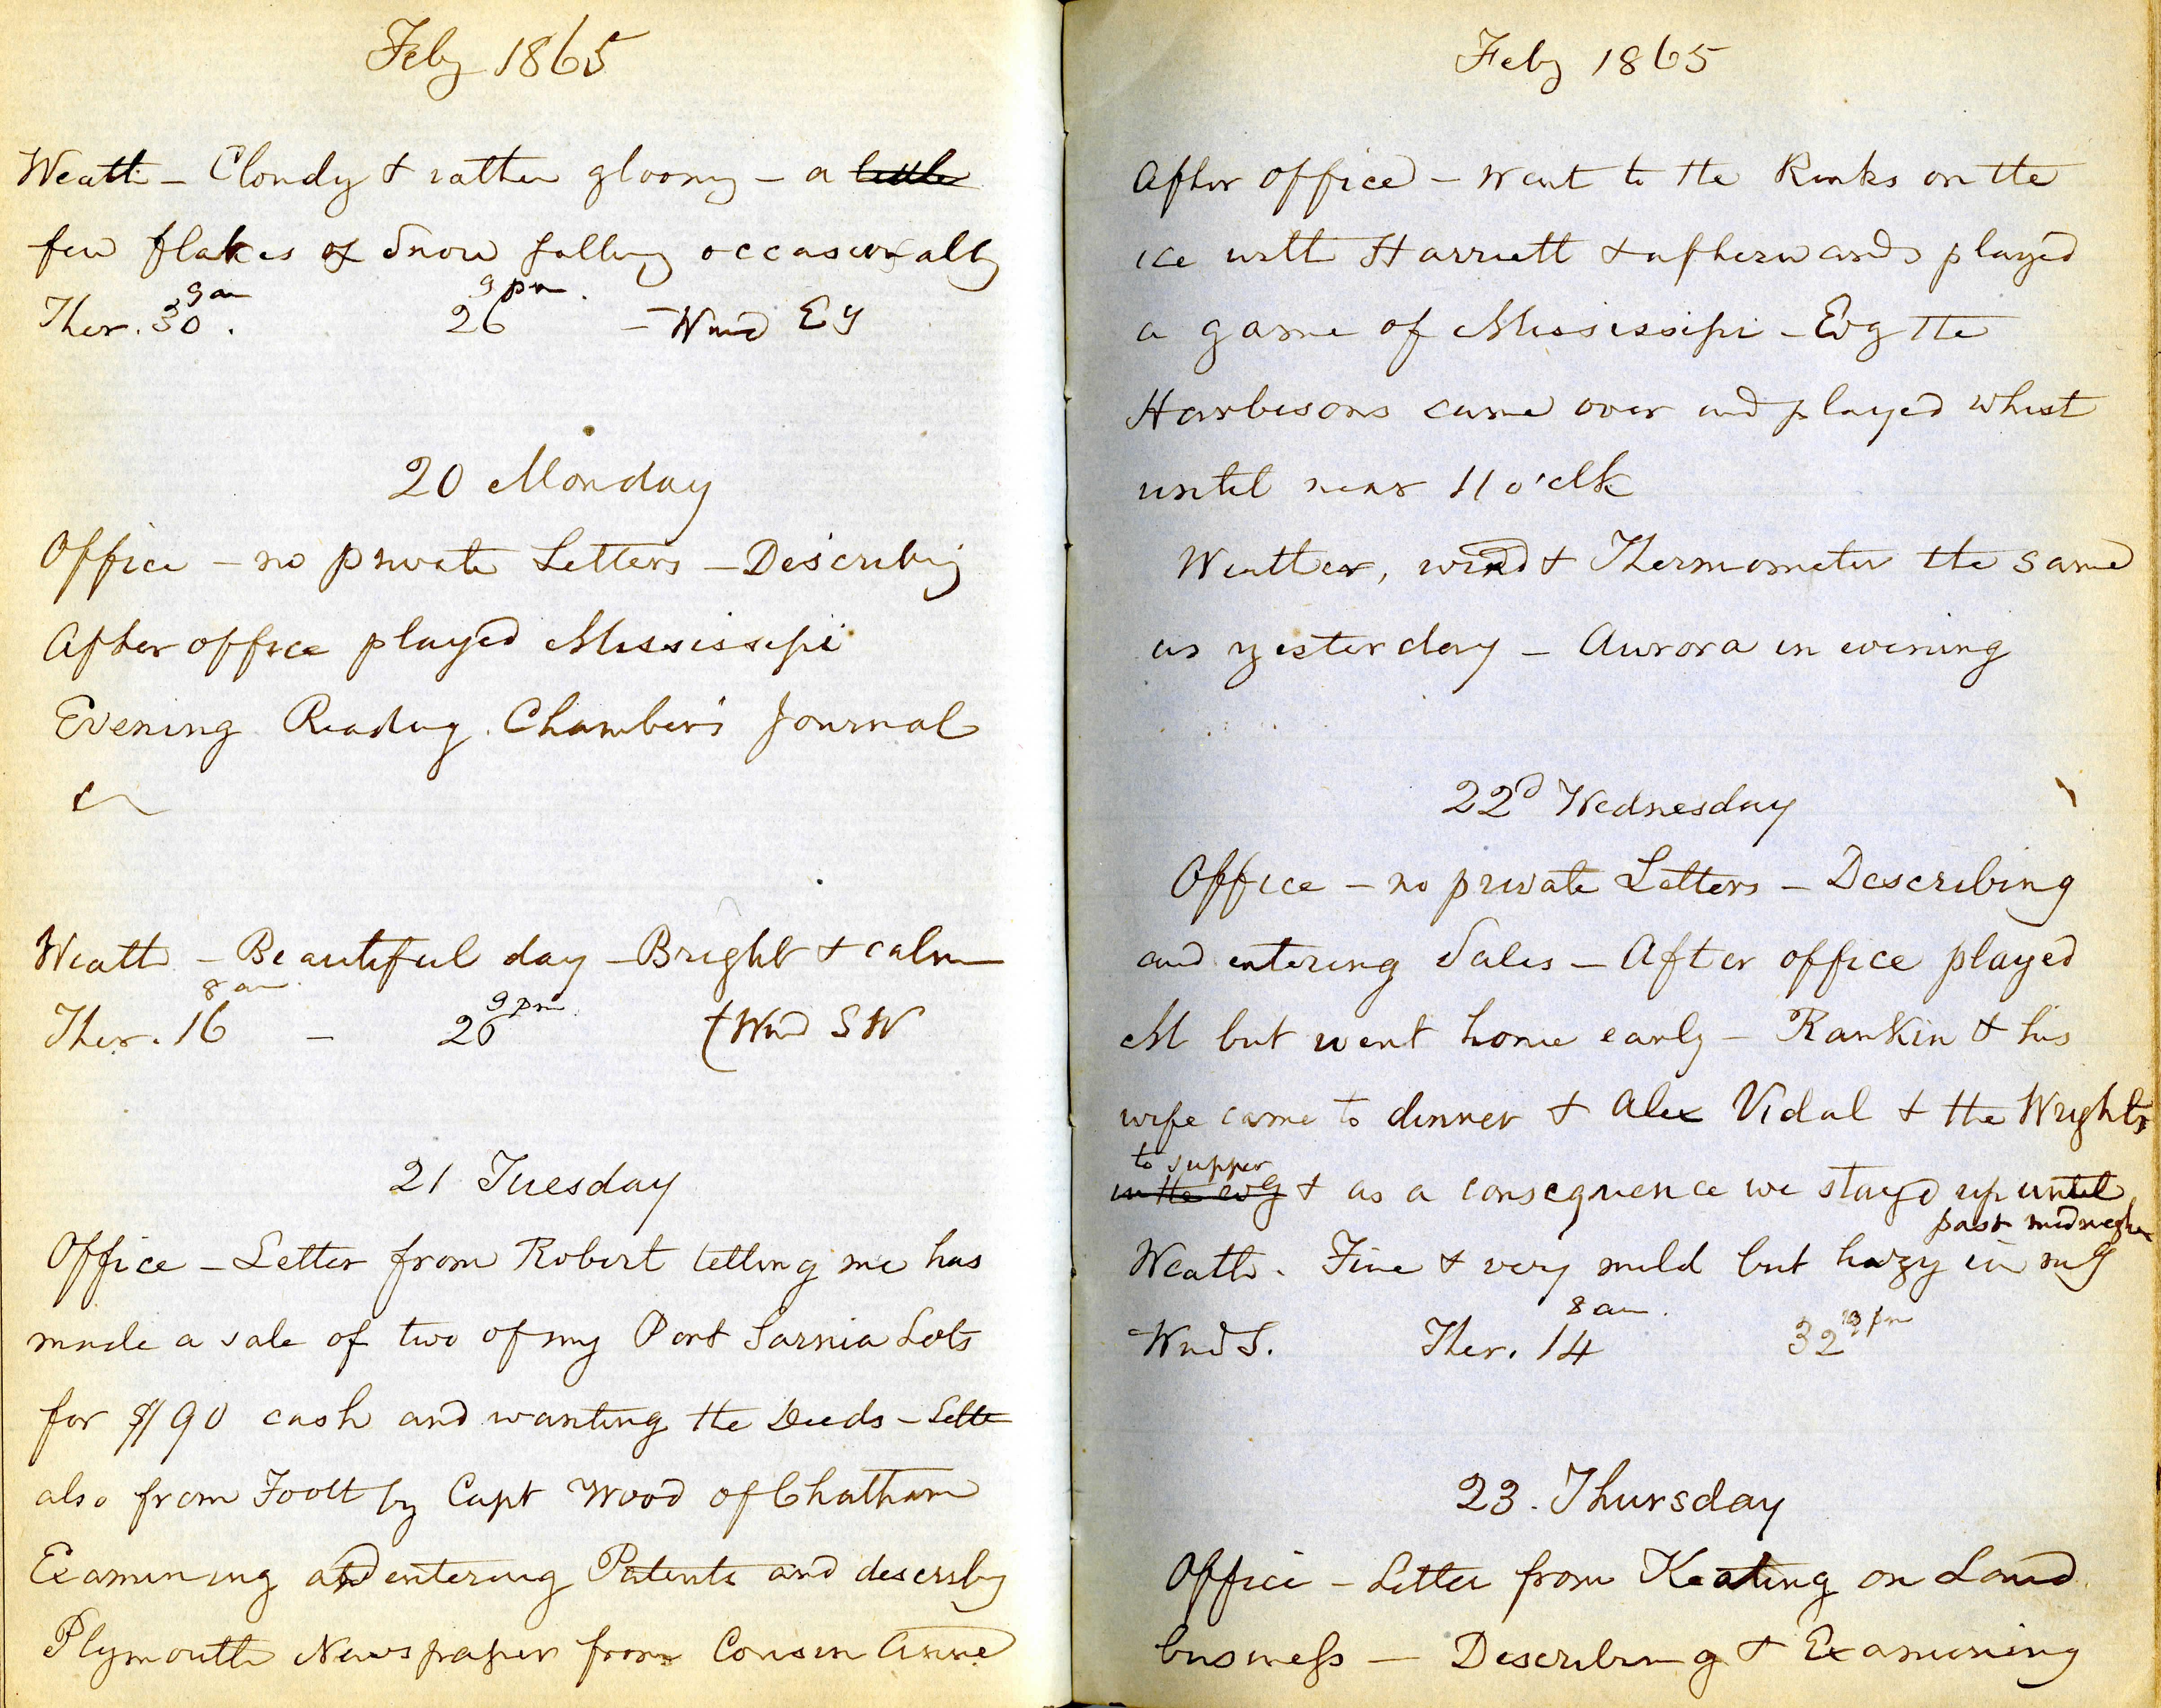 Feby 1865
Weath - Cloudy & rather gloomy - a little
few flakes of Snow falling occasionally
9 am 9 pm
Ther. 30. 26 - Wind Ey
20 Monday
Office - no private Letters - Describing
After office played Mississipi
Evening Reading Chamber's Journal
&c
Weath - Beautiful day - Bright & calm
8 am 9 pm
Ther. 16 - 26 (Wind SW
21 Tuesday
Office - Letter from Robert telling me has
made a sale of two of my Port Sarnia Lots
for $190 cash and wanting the Deeds - Letter
also from Foott by Capt Wood of Chatham
Examining and entering Patents and describg
Plymouth Newspaper from Cousin Anne
Feby 1865
After office - Went to the Rinks on the
ice with Harriett & afterwards played
a game of Mississipi - Evg the
Harbisons came over and played whist
until near 11 o'clk
Weather, wind & Thermometer the same
as yesterday - Aurora in evening
22d Wednesday
Office - no private Letters - Describing
and entering Sales - After office played
M but went home early - Rankin & his
wife came to dinner & Alex Vidal & the Wrights
to supper
in the evg & as a consequence we stayed up until
past midnight
Weath. Fine & very mild but hazy in mg
8 am. pm
Wnd S. Ther. 14 32
23. Thursday
Office - Letter from Keating on Land
business - Describing & Examining